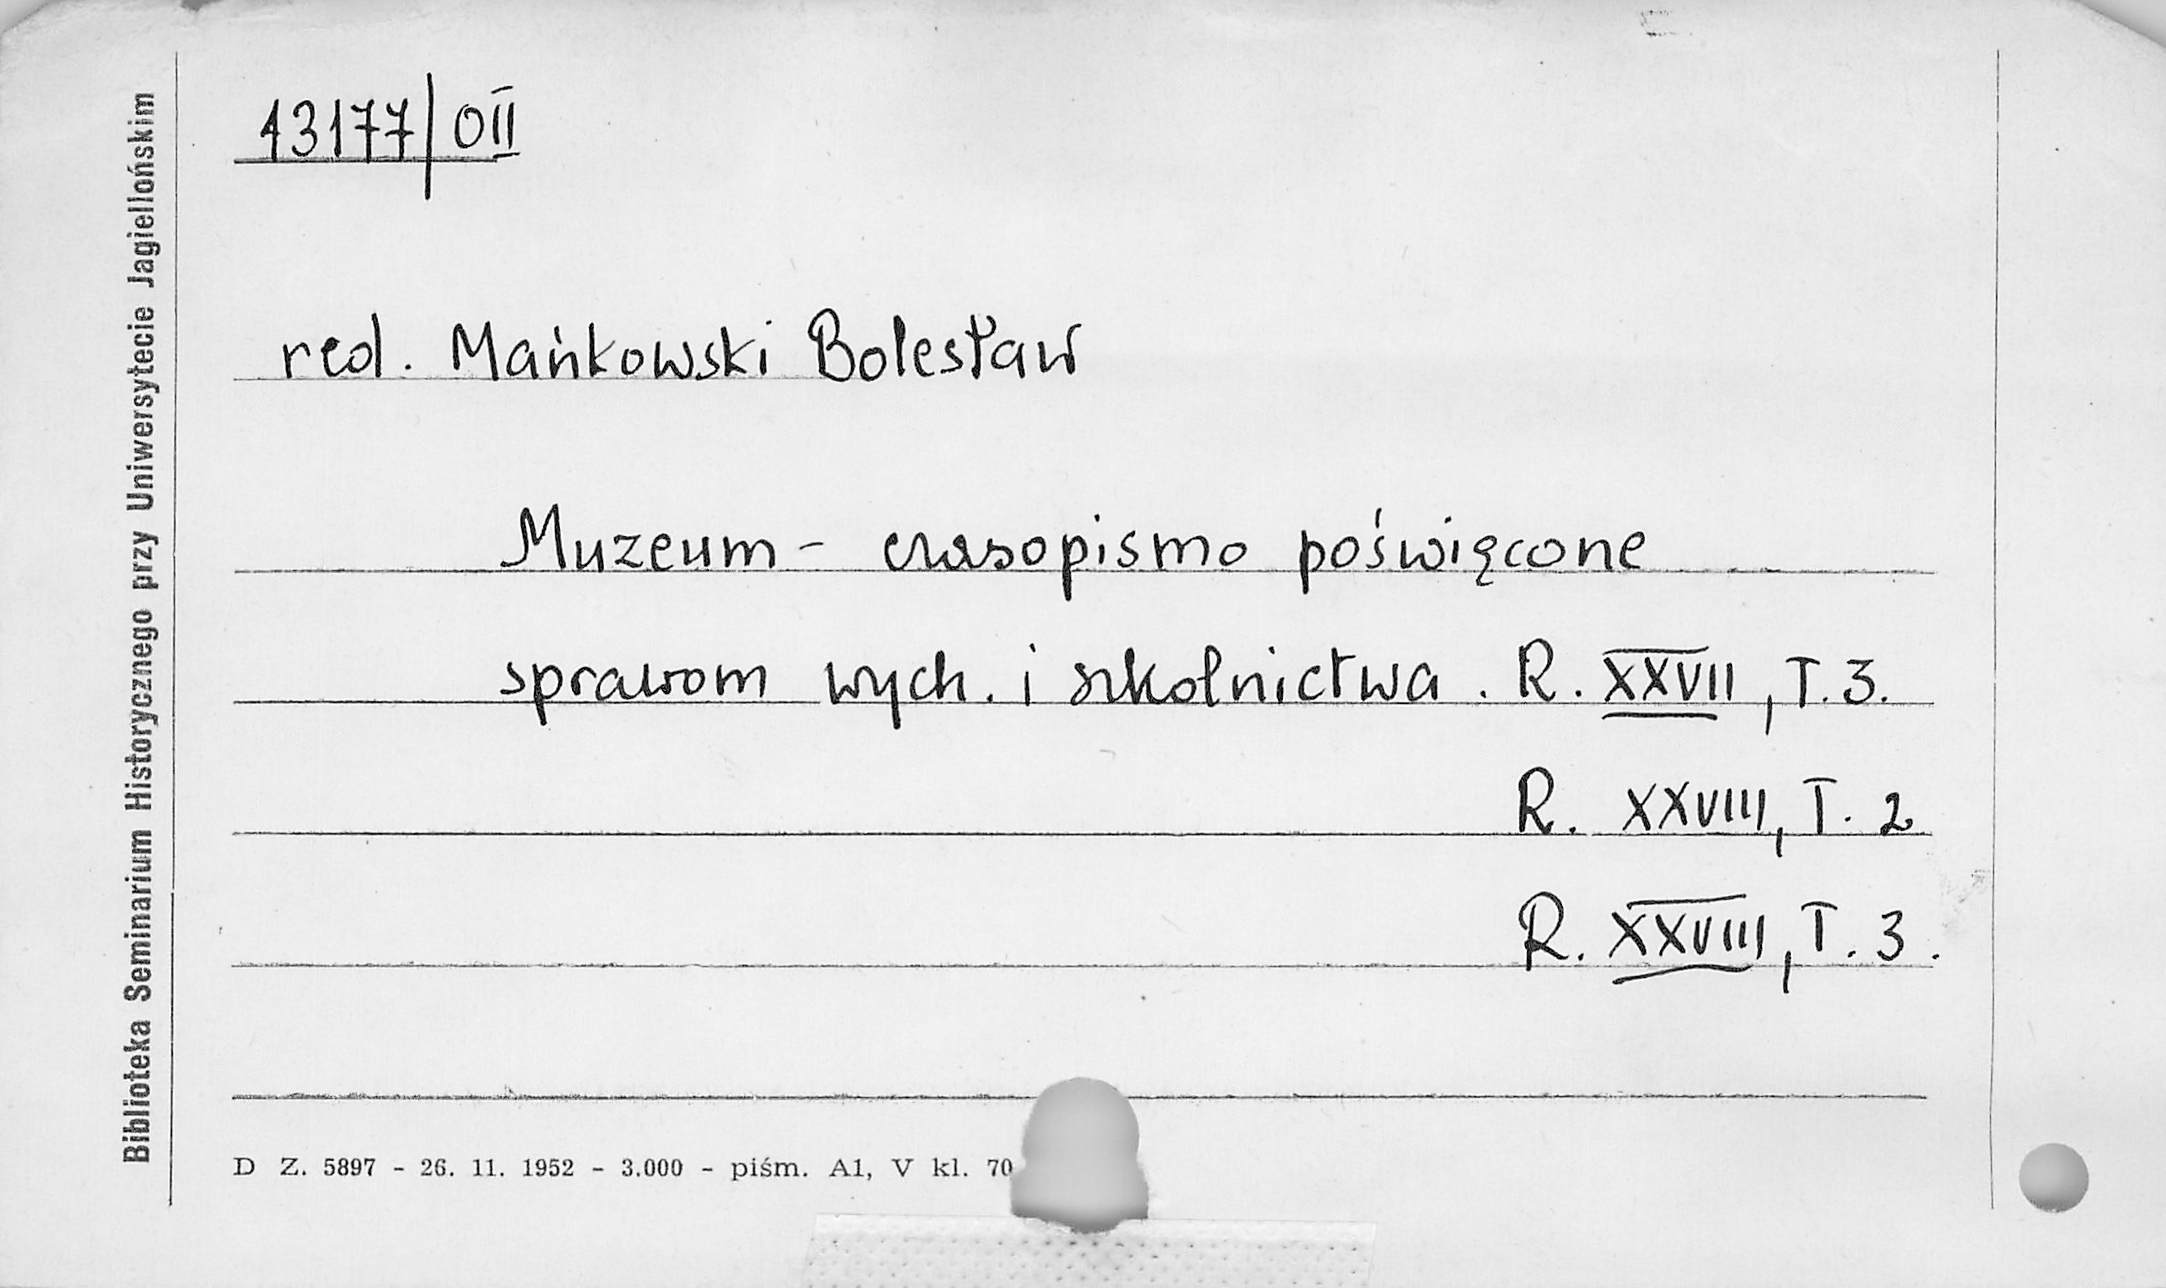 Biblioteka Seminarium Historycznego przy Uniwersytecie Jagiellońskim
13177/OII
red. Mańkowski Bolesław
Muzeum - czasopismo poświęcone
sprawom wych. i szkolnictwa. R. XXVII, T. 3.
R. XXVIII, T. 2
R. XXVIII, T. 3.
D Z. 5897 - 26. 11. 1952 - 3.000 - piśm. A1, V kl. 70